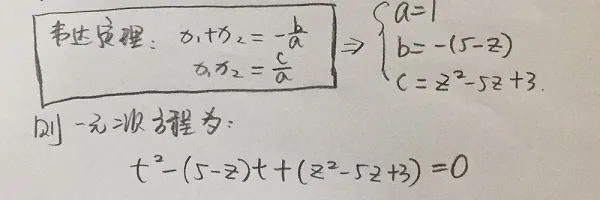 韦达定理: x₁+x₂ = -b/a ⇒ { a=1
x₁x₂ = c/a b=-(5-z)
c=z²-5z+3.
则一元二次方程为:
t²-(5-z)t+(z²-5z+3)=0